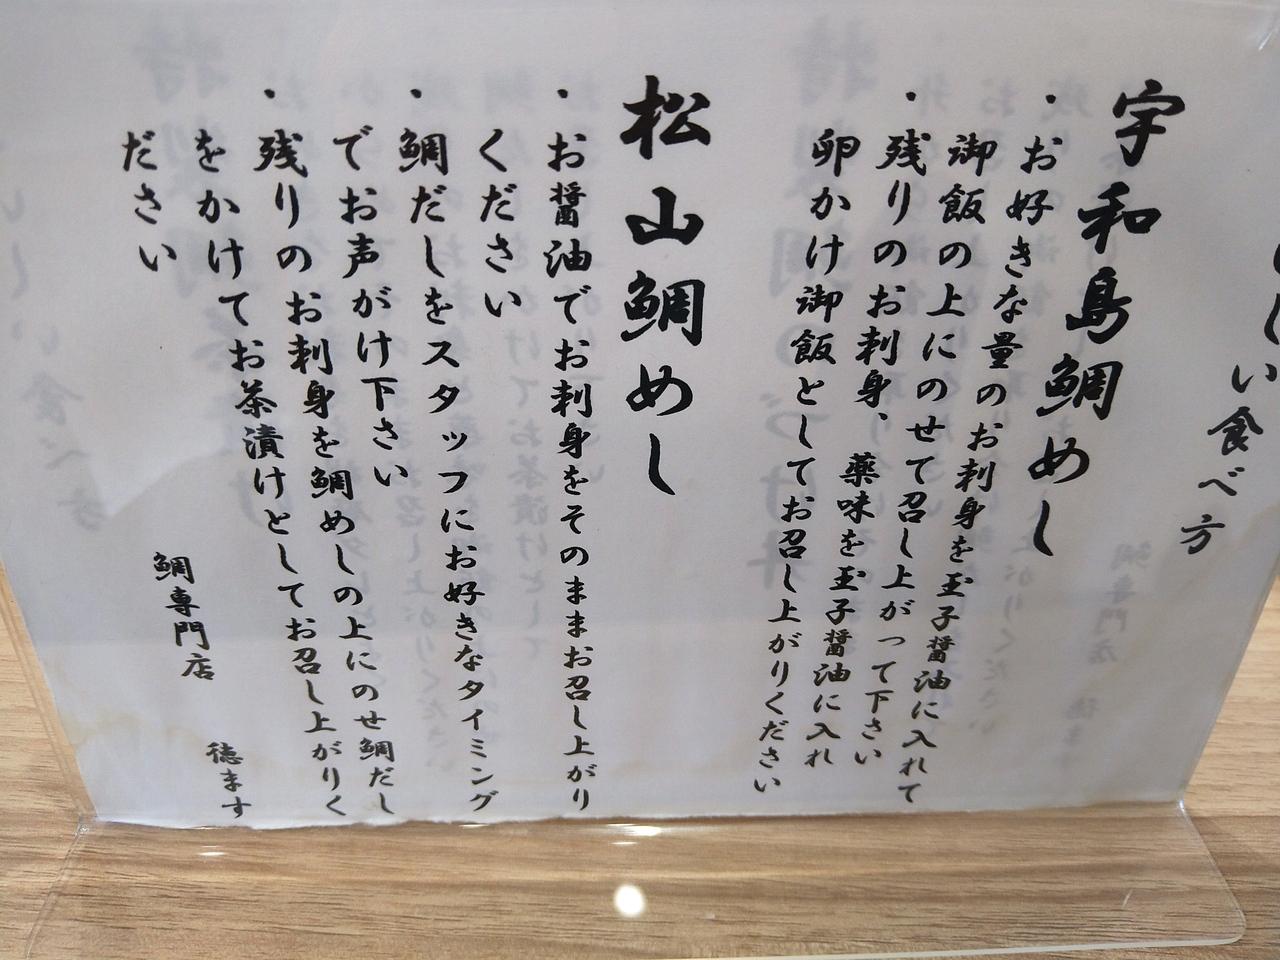 しい食べ方
宇和島鯛めし
・お好きな量のお刺身を玉子醤油に入れて
御飯の上にのせて召し上がって下さい
・残りのお刺身、薬味を玉子醤油に入れ
卵かけ御飯としてお召し上がりください
松山鯛めし
・お醤油でお刺身をそのままお召し上がり
ください
・鯛だしをスタッフにお好きなタイミング
でお声がけ下さい
・残りのお刺身を鯛めしの上にのせ鯛だし
をかけてお茶漬けとしてお召し上がりく
ださい
鯛専門店 徳ます